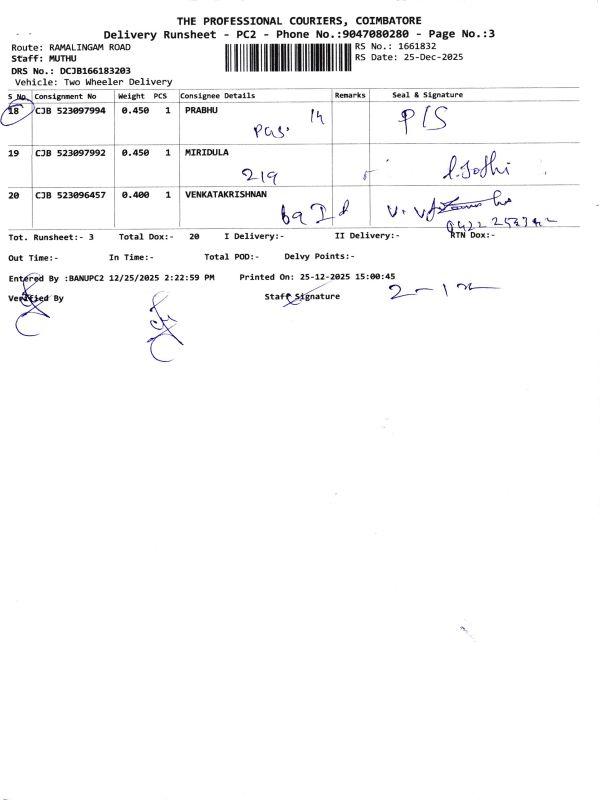 THE PROFESSIONAL COURIERS, COIMBATORE
Delivery Runsheet - PC2 - Phone No.:9047080280 - Page No.:3
Route: RAMALINGAM ROAD
RS No.: 1661832
Staff: MUTHU
RS Date: 25-Dec-2025
DRS No.: DCJB166183203
Vehicle: Two Wheeler Delivery
S No. Consignment No Weight PCS Consignee Details Remarks Seal & Signature
18 CJB 523097994 0.450 1 PRABHU
P/S
19 CJB 523097992 0.450 1 MIRIDULA
219
20 CJB 523096457 0.400 1 VENKATAKRISHNAN
Tot. Runsheet:- 3 Total Dox:- 20 I Delivery:- II Delivery:- RTN Dox:-
Out Time:- In Time:- Total POD:- Delvy Points:-
Entered By :BANUPC2 12/25/2025 2:22:59 PM Printed On: 25-12-2025 15:00:45
Verified By Staff Signature